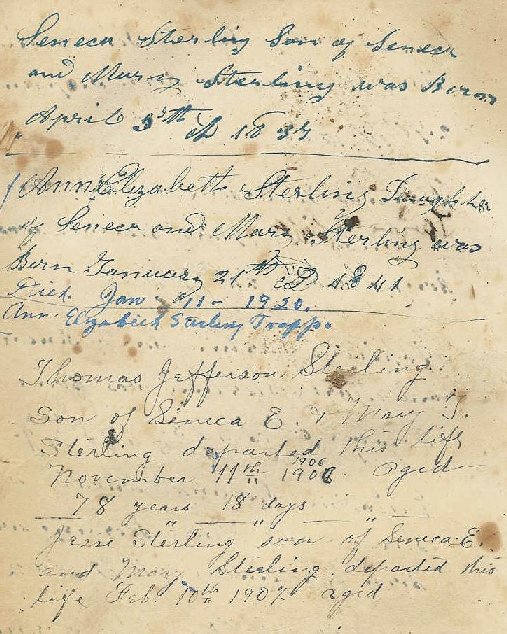 Seneca Sterling Son of Seneca
and Mary Sterling was Born
April 3th AD 1837
Ann Elizabeth Sterling Daughter
of Seneca and Mary Sterling was
Born January 21th AD 1841
Died Jan 11 - 1920.
Ann Elizabeth Sterling Trapp.
Thomas Jefferson Sterling
Son of Seneca E. & Mary
Sterling departed this life
November 11th 1906 aged
78 years 18 days
Jesse Sterling son of Seneca E.
and Mary Sterling departed this
life Feb 10th 1907 aged